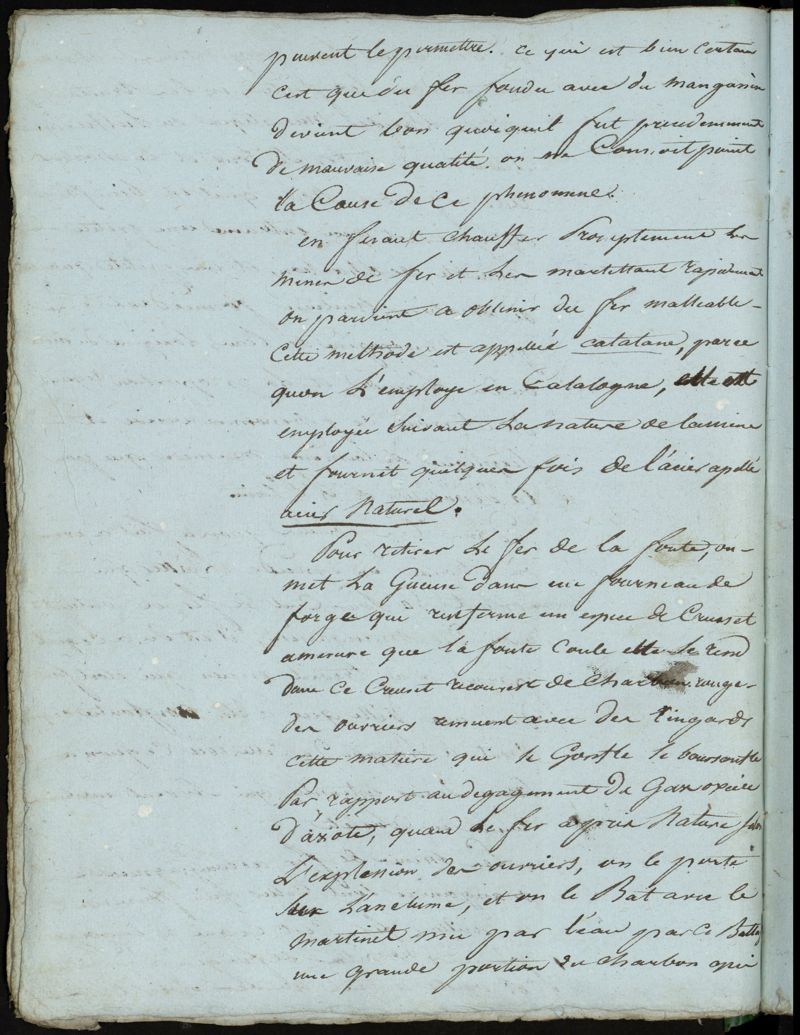 peuvent le permettre. ce qui est bien certain
c'est que du fer fondu avec du manganèse
devient bon quoiquil fut précédemment
de mauvaise qualité. on ne Concoit point
la Cause de ce phenomene.
en fesant chauffer Promptement les
mines de fer et les martellant rapidement
on parvient a obtenir du fer malleable-
Cette methode est appellée catalane, parce
quon L'employe en Catalogne, elle est
employée suivant La nature de la mine
et fournit quelques fois de l'acier apellé
acier Naturel.
Pour retirer Le fer de la fonte, on-
met La Gueuse dans un fourneau de
forge qui renferme un espece de Creuset
amesure que la fonte Coule elle se rend
dans ce Creuset recouvert de Charbon rouge-
des ouvriers remuent avec des ringards
cette matiere qui se Gonfle se boursoufle
Par rapport au degagement de Gaz oxide
D'azote, quand Le fer a pris Nature selon
L'expression des ouvriers, on le porte
sur L'anclume, et on le Bat avec le
martinet mu par l'eau par ce
une grande portion du charbon qui